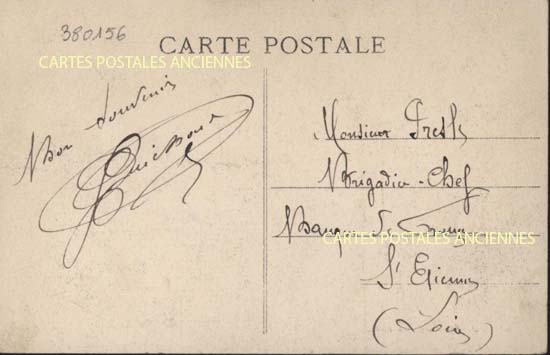 380156
CARTE POSTALE
CARTES POSTALES ANCIENNES
Bon souvenir
Monsieur
Brigadier-Chef
Banque de France
CARTES POSTALES ANCIENNES
St Etienne
(Loire)